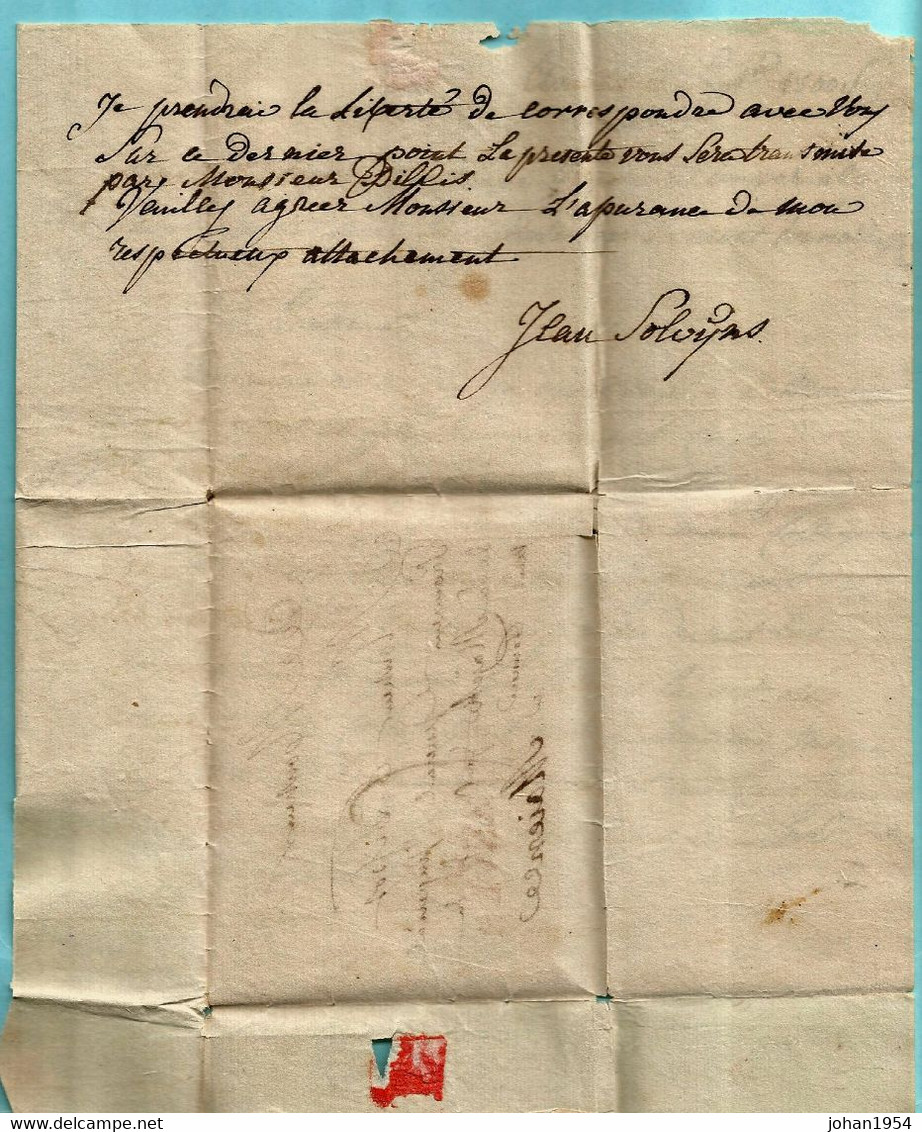 Je prendrai la Liberté de correspondre avec Vous
Sur ce dernier point La presente vous Sera transmise
par Monsieur Dillis
Veuilles agreer Monsieur L'apurance de mon
respectueux attachement
Jean Solvÿns.
Maience
johan1954